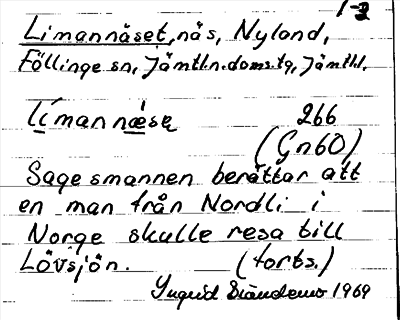 1-2
Limannäset, näs, Nyland,
Föllinge sn, Jämtl.n.doms.tg, Jämtl.
límannǽsę 266
(Gn60)
Sagesmannen berättar att
en man från Nordli i
Norge skulle resa till
Lövsjön. (forts.)
Yngrid 1969